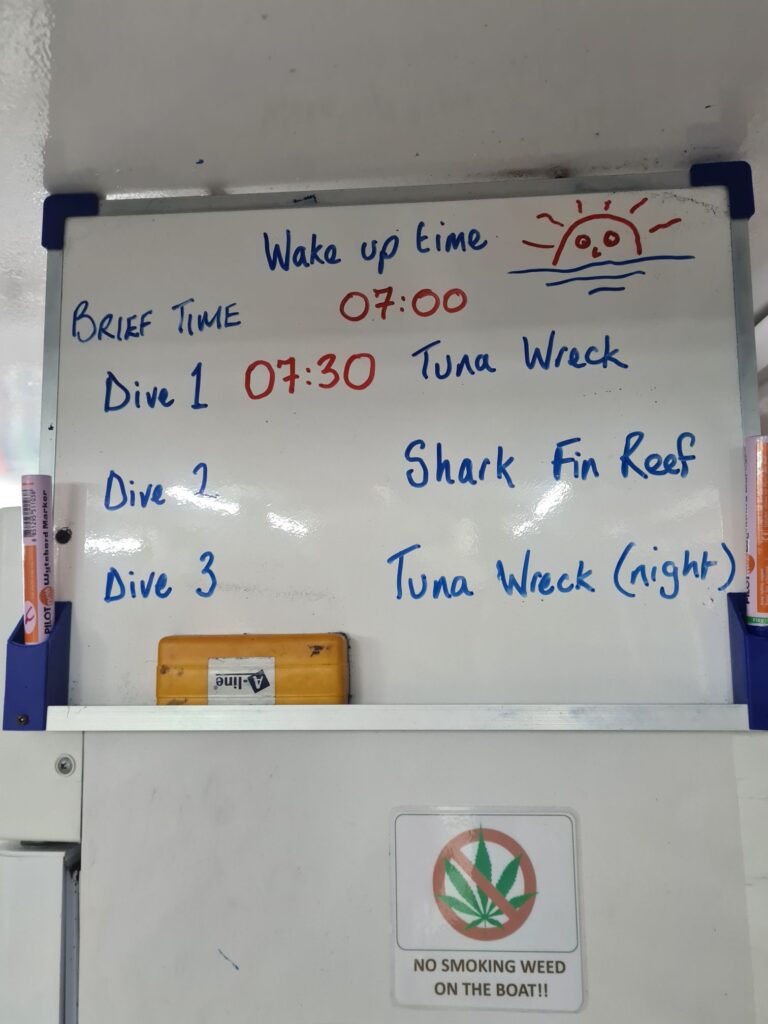 Wake up time
07:00
BRIEF TIME
Dive 1 07:30 Tuna Wreck
Dive 2 Shark Fin Reef
Dive 3 Tuna Wreck (night)
PILOT Wyteboard Marker
A-line
NO SMOKING WEED
ON THE BOAT!!